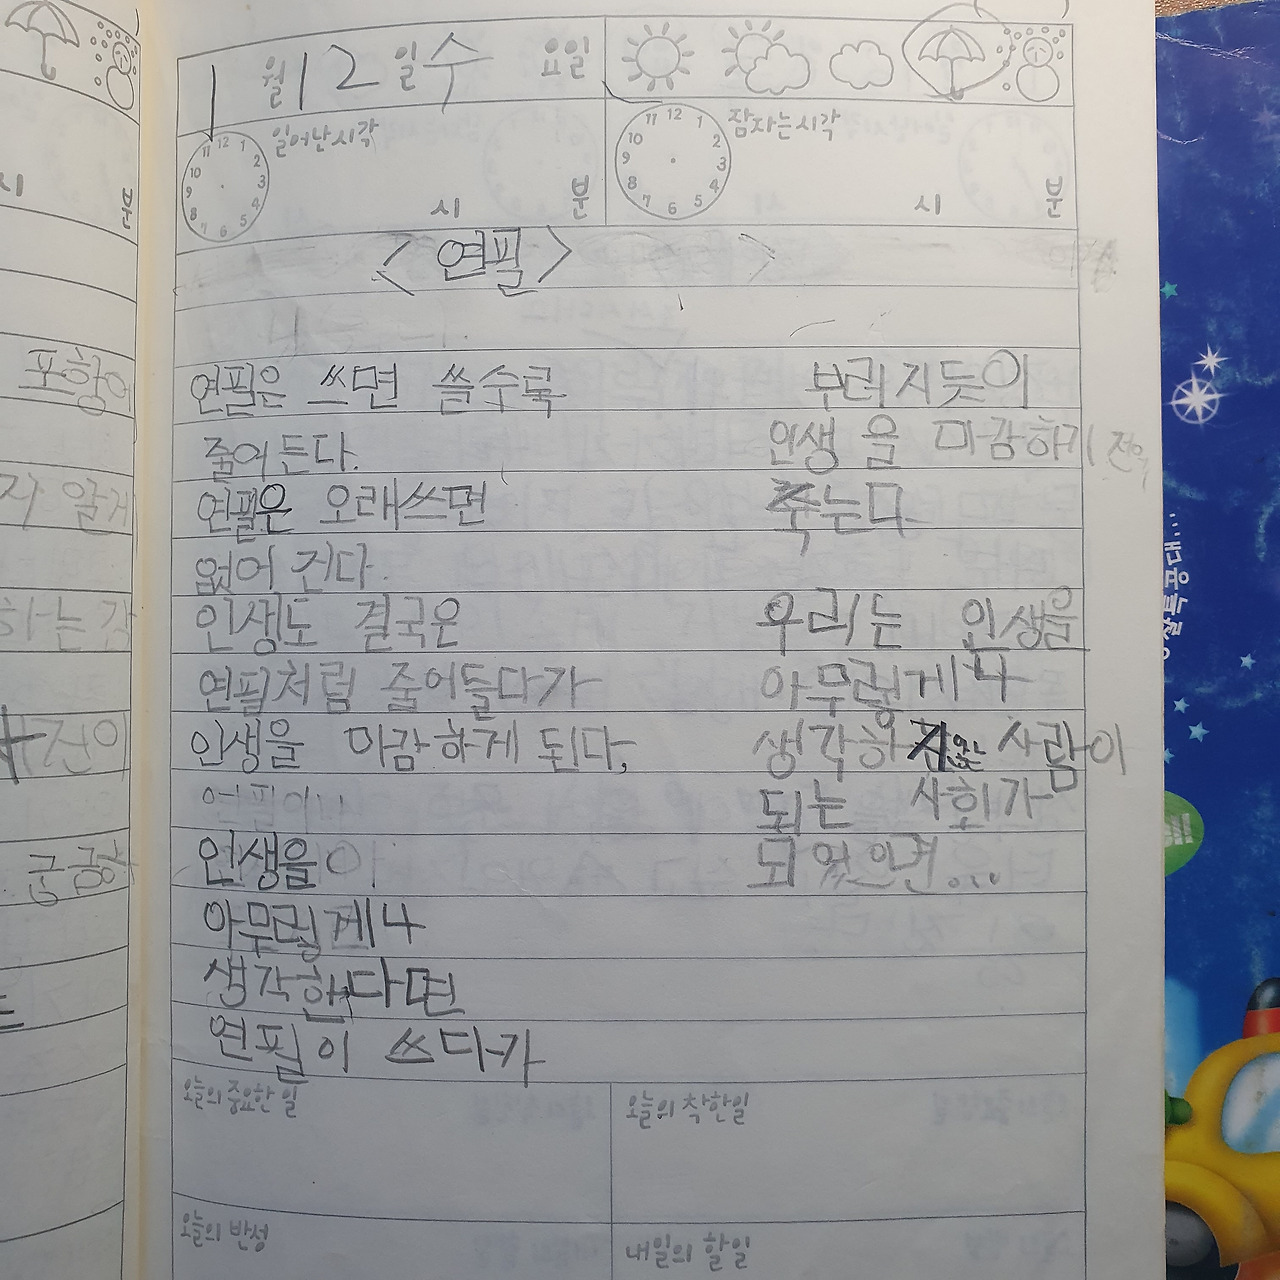 1월 12일 수요일
일어난시각
시 분
잠자는시각
시 분
<연필>
연필은 쓰면 쓸수록
줄어 든다.
연필은 오래쓰면
없어 진다.
인생도 결국은
연필처럼 줄어들다가
인생을 마감하게 된다.
인생을
아무렇게나
생각한다면
연필이 쓰다가
부러지듯이
인생을 마감하기 전에
죽는다
우리는 인생을
아무렇게나
생각하지않는 사람이
되는 사회가
되었으면...
오늘의 중요한 일
오늘의 착한일
오늘의 반성
내일의 할일
시
분
포항에
지 알게
하는 감
궁금